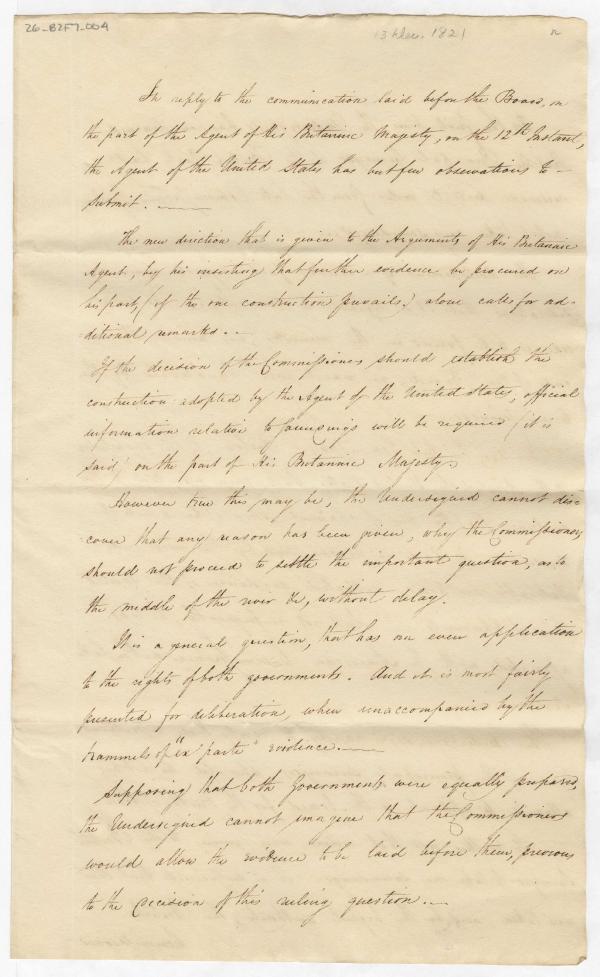 26-B2F7-004
13 Dec. 1821
2
In reply to the communication laid before the Board, on
the part of the Agent of His Britannic Majesty, on the 12th Instant,
the Agent of the United States has but few observations to
submit.
The new direction that is given to the Arguments of His Britannic
Agent, by his insisting that further evidence be procured on
his part, (if the one construction prevails) alone calls for ad-
ditional remarks.
If the decision of the Commissioners should establish the
construction adopted by the Agent of the United States, official
information relative to soundings will be required (it is
said) on the part of His Britannic Majesty.
However true this may be, the Undersigned cannot dis-
cover that any reason has been given, why the Commissioners
should not proceed to settle the important question, as to
the middle of the river &c, without delay.
It is a general question, that has an even application
to the rights of both governments. And it is most fairly
presented for deliberation, when unaccompanied by the
trammels of "ex parte" evidence.
Supposing that both Governments were equally prepared,
the Undersigned cannot imagine that the Commissioners
would allow the evidence to be laid before them, previous
to the decision of this ruling question.